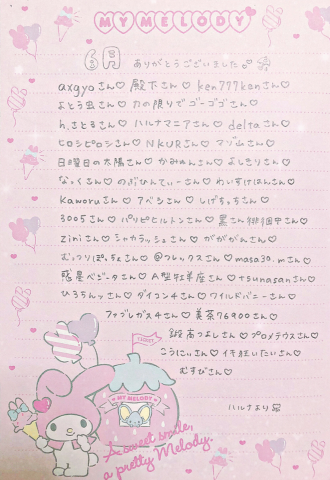 MY MELODY
6月 ありがとうございました
axgyoさん♡ 殿下さん♡ ken777kenさん♡
よとう虫さん♡ 力の限りでゴーゴゴさん♡
h.さとるさん♡ ハルナマニアさん♡ deltaさん♡
ヒロシピロシさん♡ NKURさん♡ マヅ山さん♡
日曜日の太陽さん♡ かみゅんさん♡ よしきりさん♡
なっくさん♡ のざひんてぃーさん♡ わいすけはんさん♡
Kaworuさん♡ アベシさん♡ しげちっちさん♡
3005さん♡ パリピヒルトンさん♡ 黒さん徘徊中さん♡
Ziniさん♡ シャカラッシュさん♡ がががんさん♡
むっつりぽっちぇさん♡ @フレックスさん♡ masa30.mさん♡
惑星ベジータさん♡ A型牡羊座さん♡ tsunasanさん♡
ひろちんッさん♡ ダイコン4さん♡ ワイルドバニーさん♡
ファブレガス4さん♡ 美茶76900さん♡
TICKET
鍛高つよしさん♡ プロメテウスさん♡
こうにぃさん♡ イキ狂いたいさん♡
むすびさん♡
MY MELODY
ハルナより
A sweet smile,
a pretty Melody.